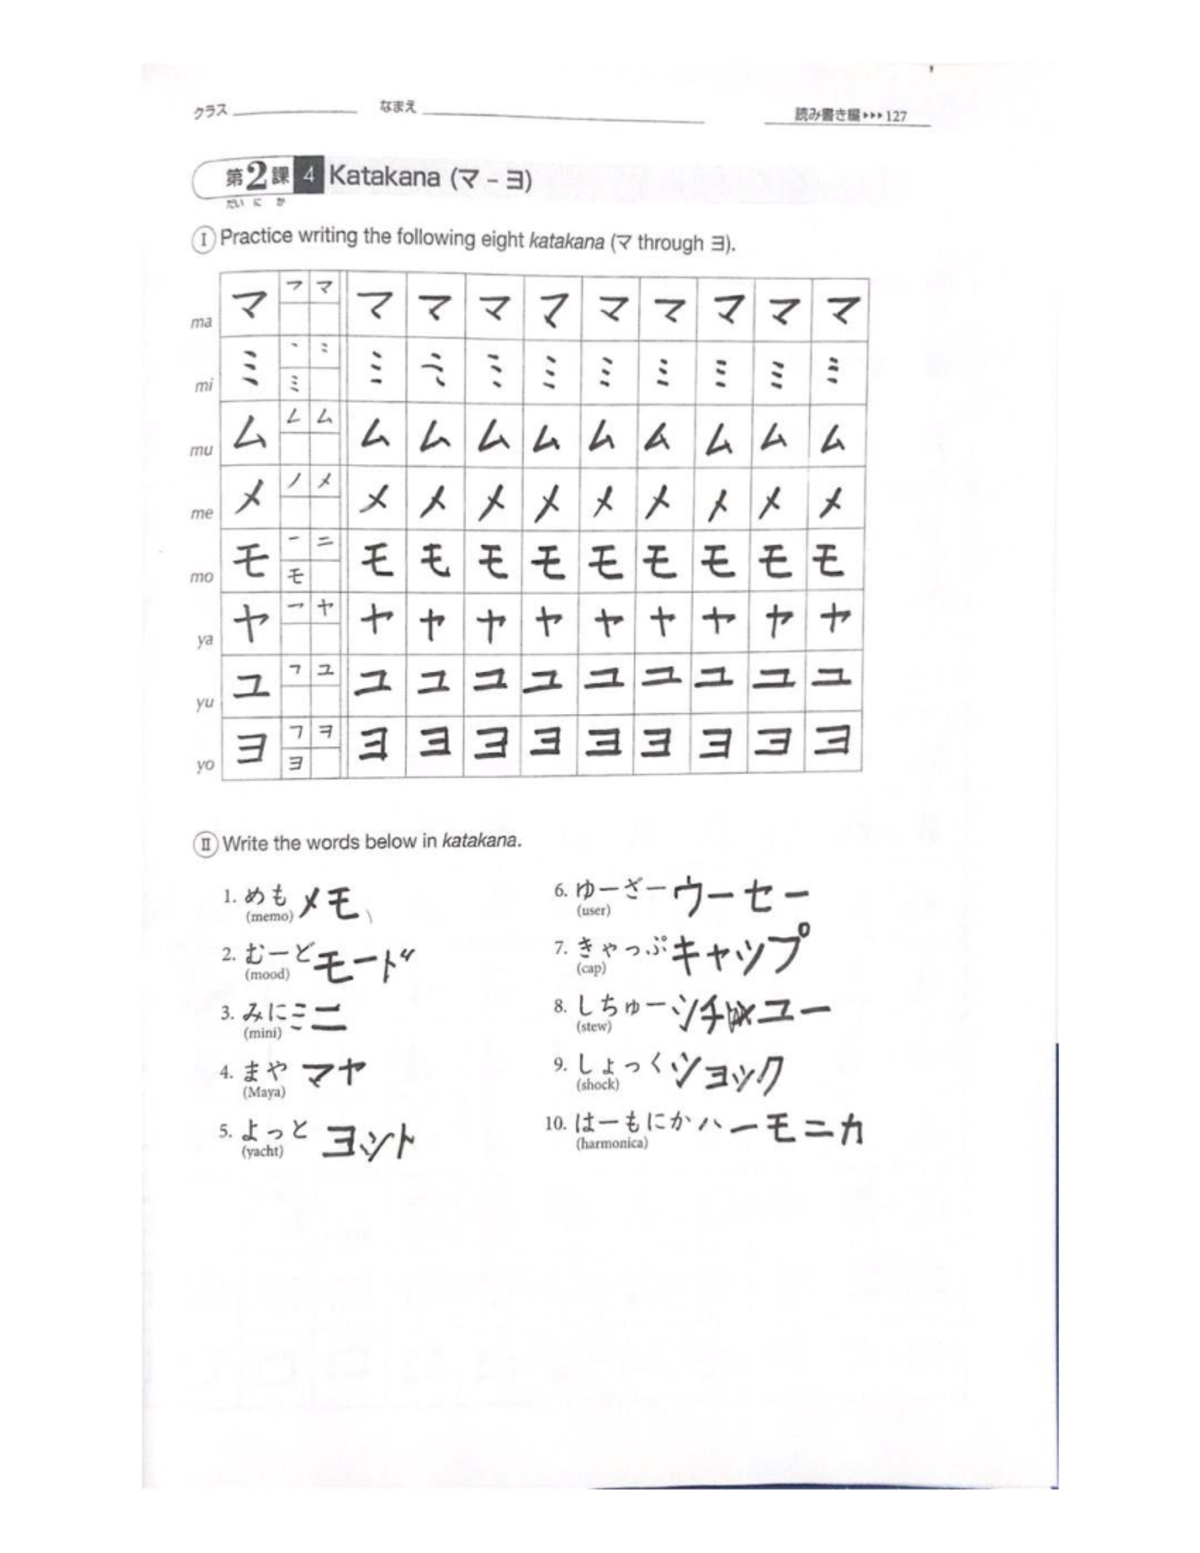 クラス なまえ 読み書き編▸▸▸127
第2課 4 Katakana (マ – ヨ)
だい に か
Ⅰ Practice writing the following eight katakana (マ through ヨ).
ma マ フ マ マ マ マ マ マ マ マ マ マ
mi ミ ミ ミ ミ ミ ミ ミ ミ ミ ミ ミ
mu ム ム ム ム ム ム ム ム ム ム ム
me メ ノ メ メ メ メ メ メ メ メ メ メ
mo モ 一 二 モ モ モ モ モ モ モ モ モ モ
ya ヤ ヤ ヤ ヤ ヤ ヤ ヤ ヤ ヤ ヤ ヤ
yu ユ フ ユ ユ ユ ユ ユ ユ ユ ユ ユ ユ
yo ヨ フ ヲ ヨ ヨ ヨ ヨ ヨ ヨ ヨ ヨ ヨ ヨ
Ⅱ Write the words below in katakana.
1. めも メモ
(memo)
2. むーど モード
(mood)
3. みに ミニ
(mini)
4. まや マヤ
(Maya)
5. よっと ヨット
(yacht)
6. ゆーざー ウーセー
(user)
7. きゃっぷ キャップ
(cap)
8. しちゅー シチューー
(stew)
9. しょっく ショック
(shock)
10. はーもにか ハーモニカ
(harmonica)